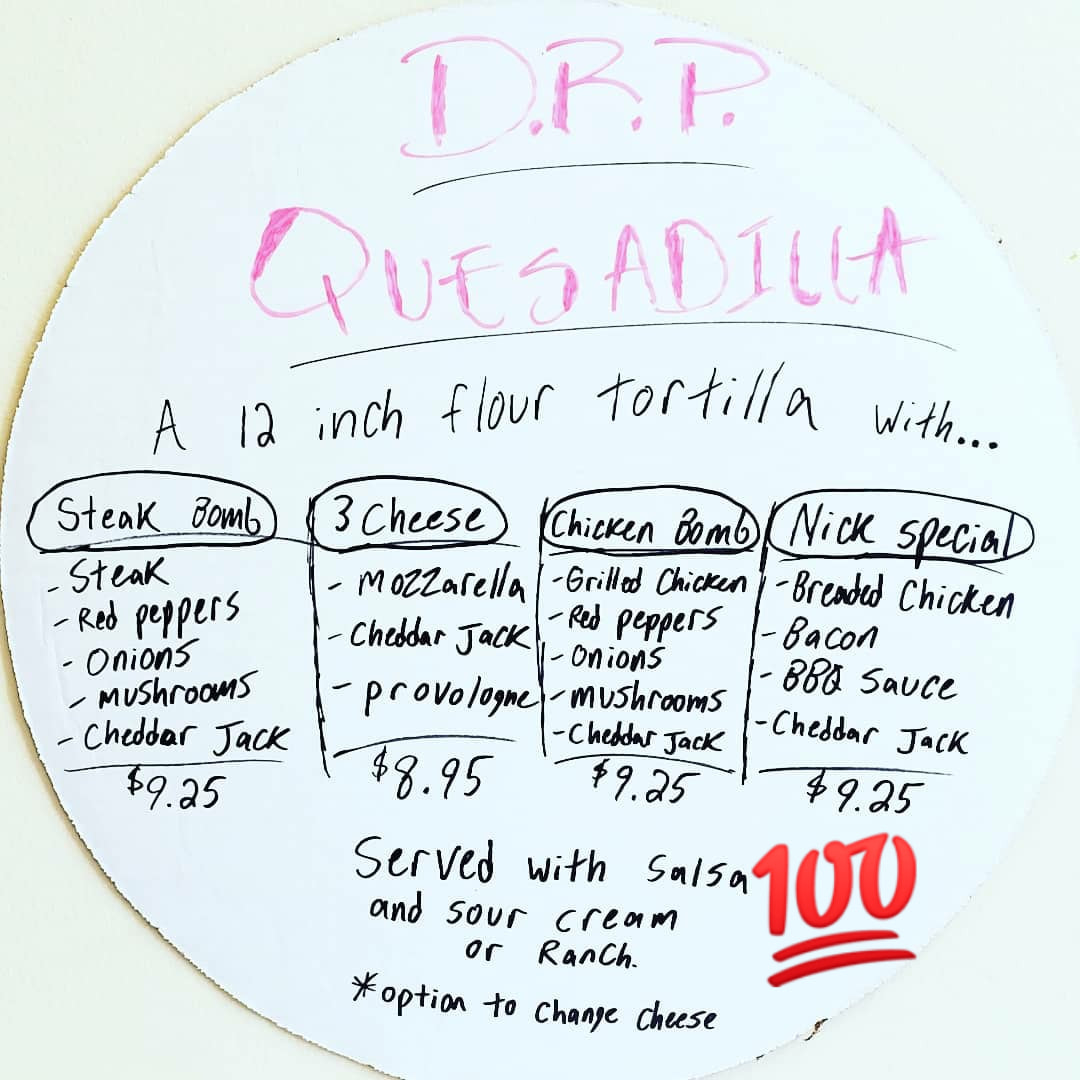 D.R.P.
QUESADILLA
A 12 inch flour tortilla with...
Steak Bomb
- Steak
- Red peppers
- Onions
- mushrooms
- Cheddar Jack
$9.25
3 Cheese
- Mozzarella
- Cheddar Jack
- provologne
$8.95
Chicken Bomb
- Grilled Chicken
- Red peppers
- Onions
- mushrooms
- Cheddar Jack
$9.25
Nick Special
- Breaded Chicken
- Bacon
- BBQ Sauce
- Cheddar Jack
$9.25
Served with Salsa
and sour cream
or Ranch.
*option to change cheese
100